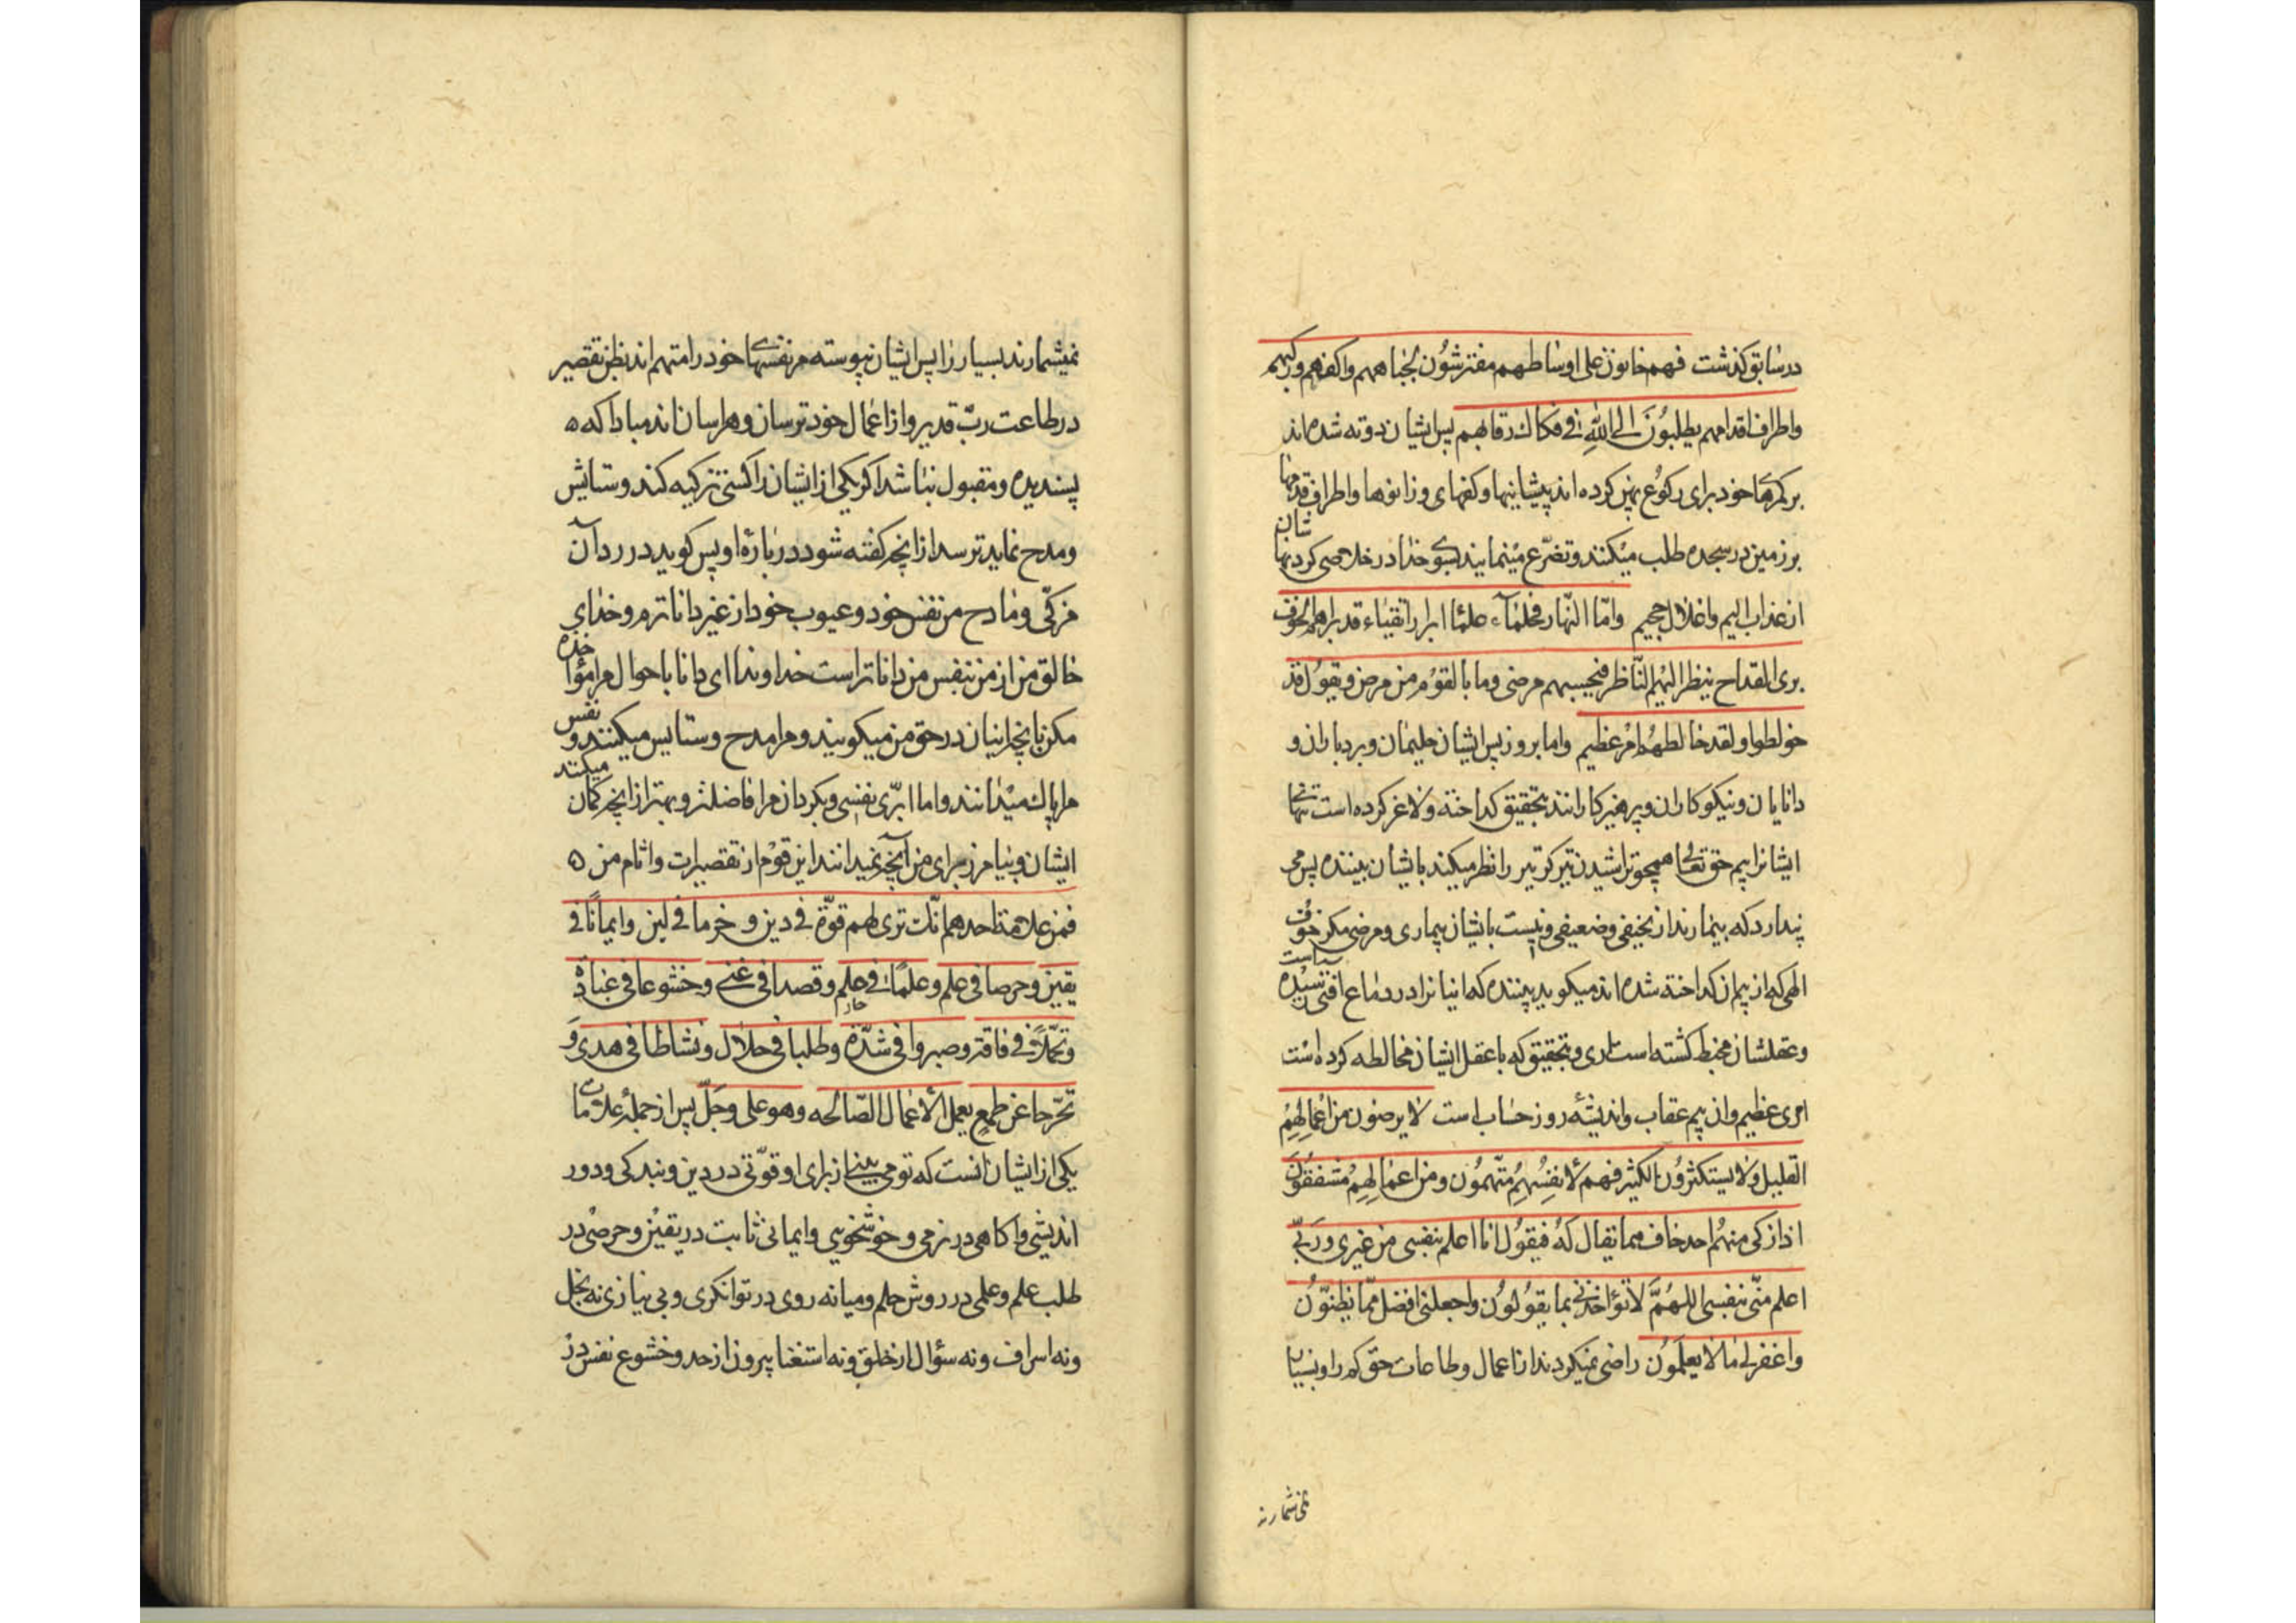 درسابق كذشت فهم حانون على اوساطهم مفترشون لجباههم واكفهم وركبهم
واطراف اقدامهم يطلبون الى الله فى فكاك رقابهم پس ايشان دوته شده اند
بر كمرهاى خود براى ركوع پهن كرده اند پيشانيها وكفهاى وزانوها واطراف قدمهاى
شان
بر زمين در سجده طلب ميكنند وتضرّع مينمايند بسوى خدا در خلاصى كردنها
از عذاب اليم واغلال جحيم وامّا النّهار فحلماء علماء ابرار اتقياء قد براهم الخوف
برى القداح ينظر اليهم النّاظر فيحسبهم مرضى وما بالقوم من مرض ويقول قد
خولطوا ولقد خالطهم امر عظيم واما بروز پس ايشان حليمان وبردباران و
دانايان ونيكوكاران وپرهيزكارانند بتحقيق كداخته ولاغر كرده است تنهاى
ايشانرا بيم حق تعالى همچو تراشيدن تيركر تير را نظر ميكند بايشان بيننده پس مى
پندارد كه بيمارند از نحيفى وضعيفى ونيست بايشان بيمارى ومرضى مكر خوف
الهى كه از بيم ان كداخته شده اند ميكويد بيننده كه اينانرا در دماغ افتى رسيده
است
وعقلشان مخبط كشته است ارى وبتحقيق كه با عقل ايشان مخالطه كرده است
امرى عظيم وان بيم عقاب وانديشهٔ روز حساب است لا يرضون من اعمالهم
القليل ولا يستكثرون الكثير فهم لانفسهم متّهمون ومن اعمالهم مشفقون
اذا زكى منهم احد خاف مما يقال له فيقول انا اعلم بنفسى من غيرى وربّى
اعلم منّى بنفسى اللهمّ لا تؤاخذنى بما يقولون واجعلنى افضل ممّا يظنّون
واغفر لى ما لا يعلمون راضى نميكردند از اعمال وطاعات حق كم را وبسيار
نمى شمارند
نميشمارند بسيار را پس ايشان پيوسته مر نفسهاى خود را متهم اند بظن تقصير
در طاعت ربّ قدير واز اعمال خود ترسان وهراسان اند مبادا كه
پسنديده ومقبول نباشد اكر يكى از ايشان را كسى تزكيه كند وستايش
ومدح نمايد ترسد از انچه كفته شود در بارهٔ او پس كويد در رد آن
مزكّى ومادح من نفس خود وعيوب خود از غير داناترم وخداى
خالق من از من بنفس من داناتر است خداوندا اى دانا باحوال مرا مؤا
خذه
مكن بانچه اينان در حق من ميكويند ومرا مدح وستايس ميكنند و
نفس
مرا پاك ميدانند واما ابرّى نفسى وبكردان مرا فاضلتر وبهتر از انچه كمان
ميكنند
ايشان وبيامرز براى من آنچه نميدانند اين قوم از تقصيرات واثام من
فمن علامة احدهم انّك ترى لهم قوّة فى دين وحزما فى لين وايمانًا فى
يقين وحرصا فى علم وعلمًا فى حلم وقصدا فى غنى وخشوعا فى عبادة
وتحمّلاً فى فاقة وصبروا فى شدّة وطلبا فى حلال ونشاطا فى هدى و
تحرّجا عن طمع يعمل الاعمال الصّالحه وهو على وجلّ پس از جملهٔ علامات
يكى از ايشان انست كه تو مى بينى از براى او قوّتى در دين وبندكى ودور
انديشى واكاهى در نرمى وخوشخويى وايمانى ثابت در يقين وحرصى در
طلب علم وعلمى در روش حلم وميانه روى در توانكرى وبى نيازى نه بخل
ونه اسراف ونه سؤال از خلق ونه استغنا بيرون از حد وخشوع نفس در